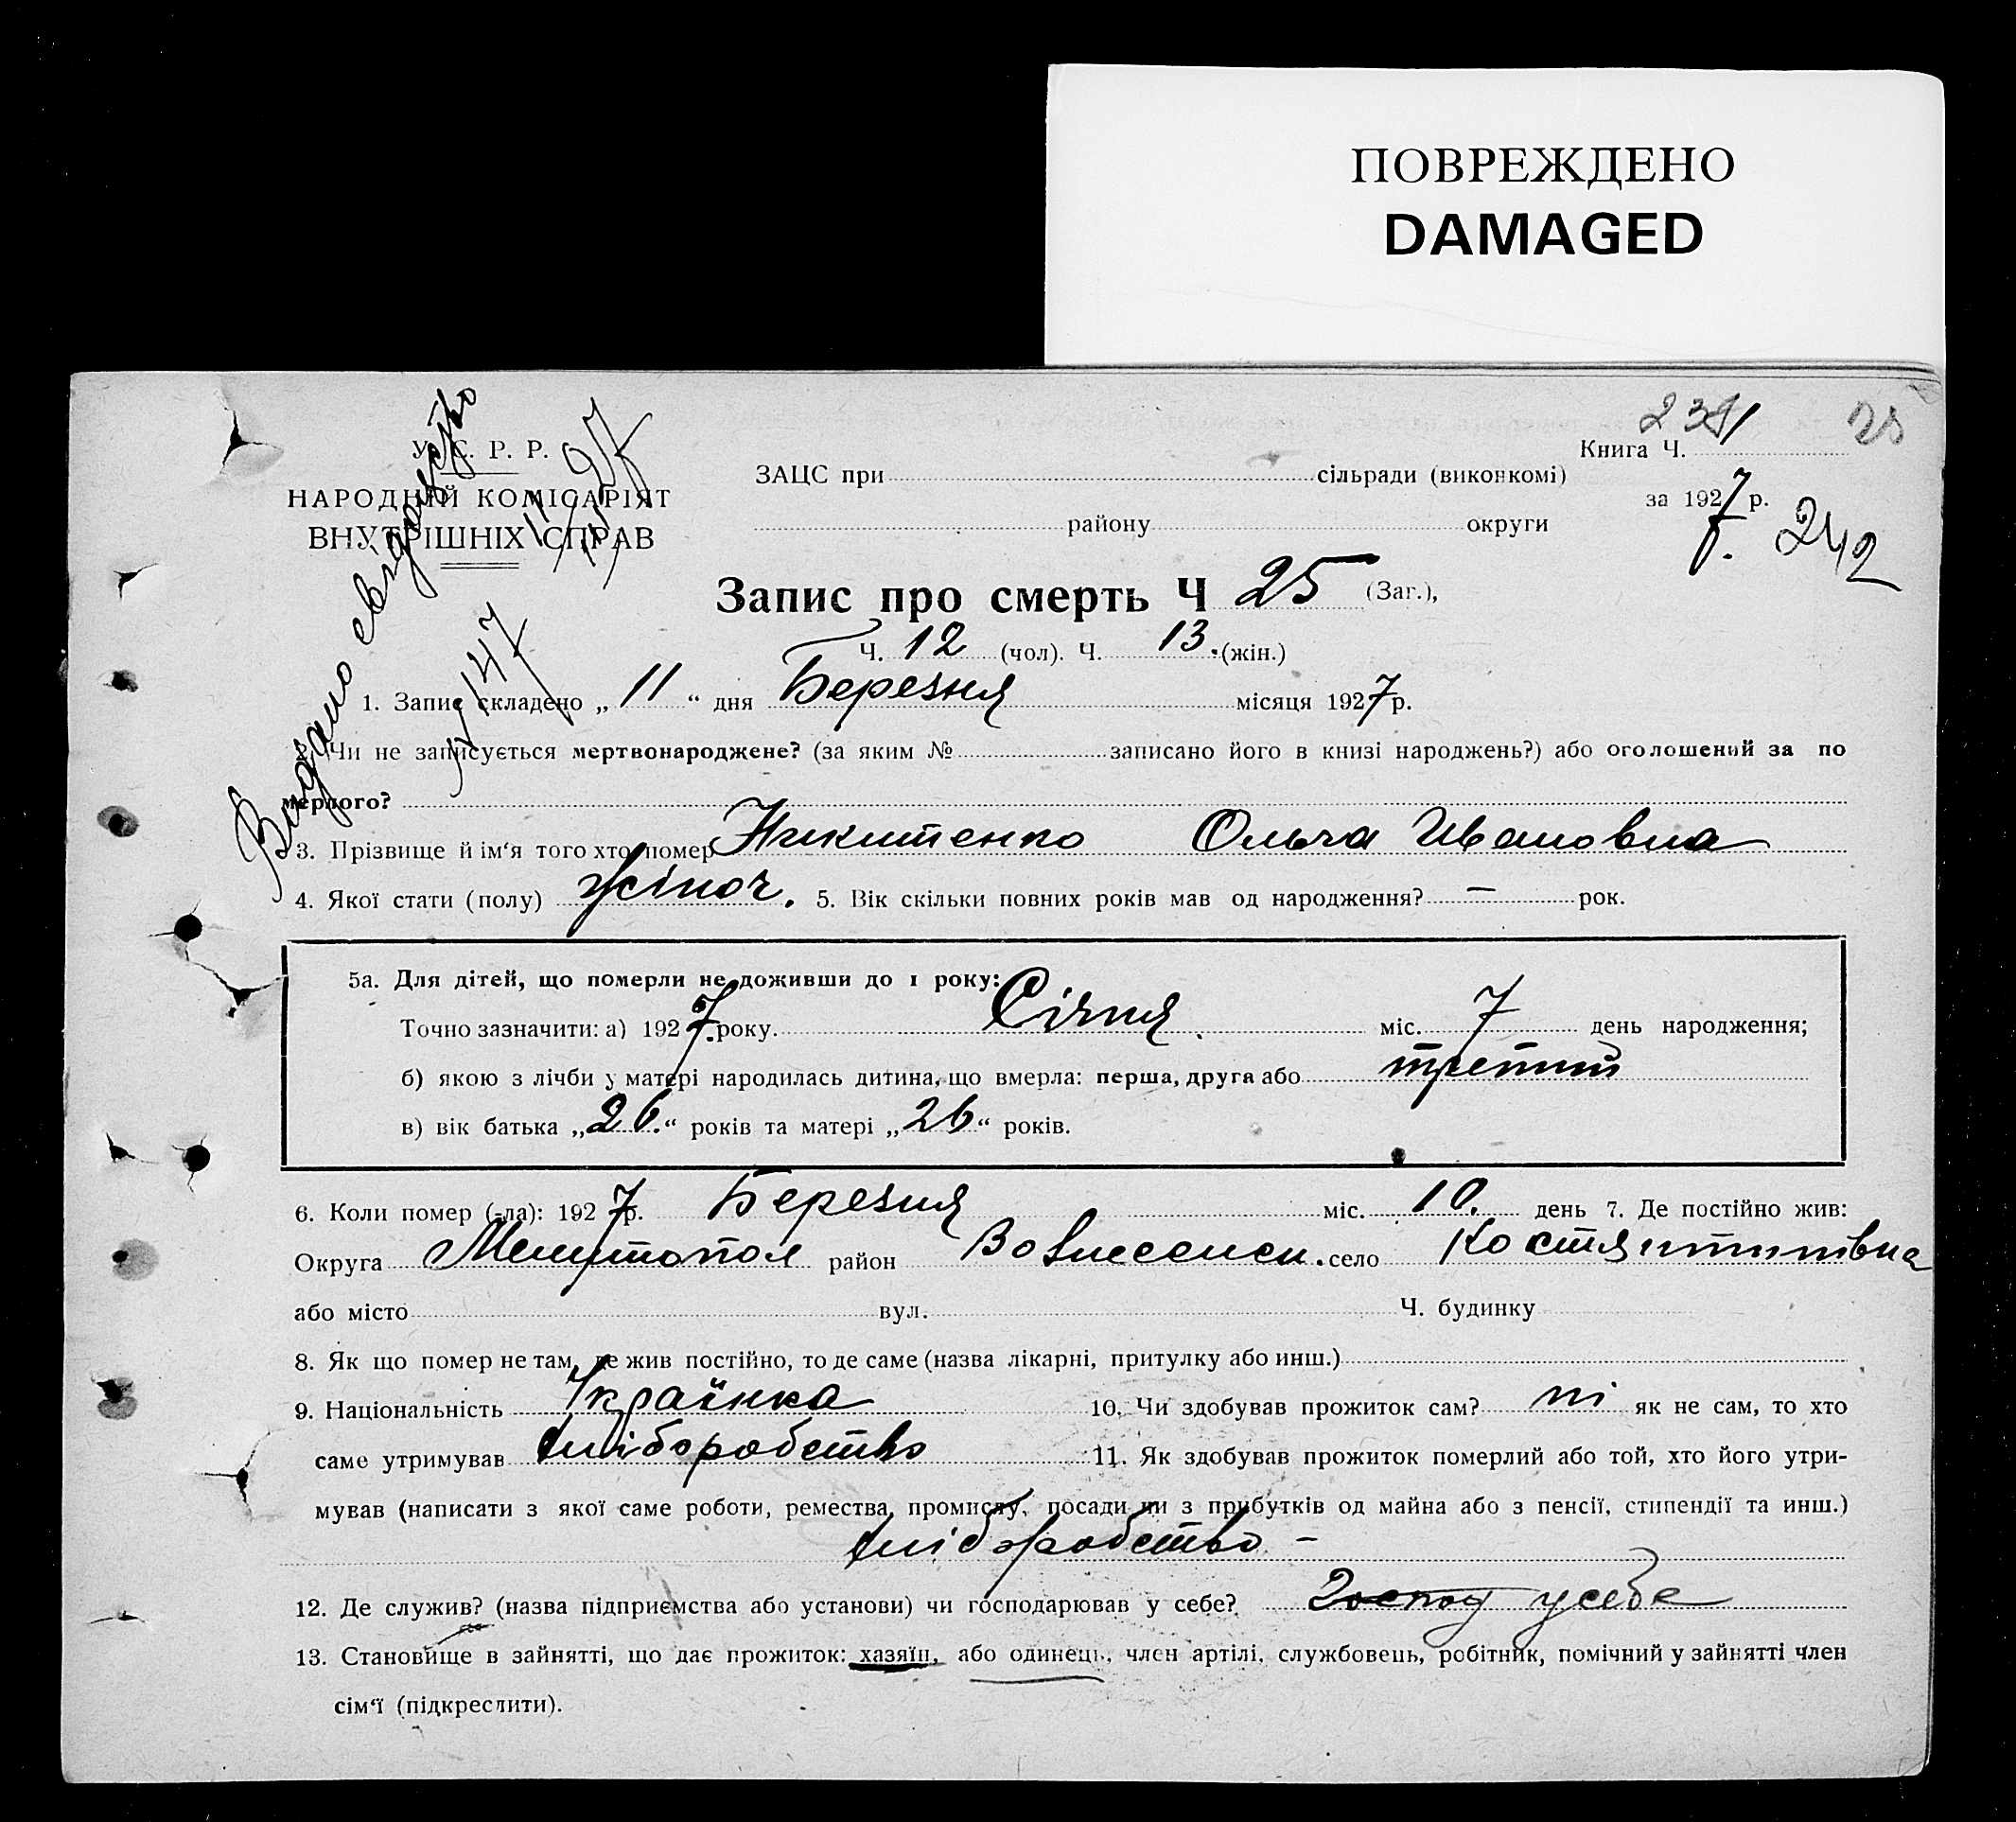 ПОВРЕЖДЕНО
DAMAGED
У. С. Р. Р.
НАРОДНІЙ КОМІСАРІЯТ
ВНУТРІШНІХ СПРАВ
Видано свідоцтво
ЗАЦС при сільради (виконкомі)
району округи
Книга Ч.
за 1927 р.
242
Запис про смерть Ч 25 (Заг.),
Ч. 12 (чол). Ч. 13. (жін.)
1. Запис складено „ 11 “ дня Березня місяця 1927 р.
2. Чи не записується мертвонароджене? (за яким № записано його в книзі народжень?) або оголошений за по
мерлого?
3. Прізвище й ім'я того хто помер Никитенко Ольга Ивановна
4. Якої стати (полу) жіноч. 5. Вік скільки повних років мав од народження? — рок.
5а. Для дітей, що померли не доживши до 1 року:
Точно зазначити: а) 1927 року. Січня. міс. 7 день народження;
б) якою з лічби у матері народилась дитина, що вмерла: перша, друга або третий
в) вік батька „26.“ років та матері „26“ років.
6. Коли помер (-ла): 1927 р. Березня міс. 10. день 7. Де постійно жив:
Округа Мелитопол район Вознесенск. село Костянтинівна
або місто вул. Ч. будинку
8. Як що помер не там, де жив постійно, то де саме (назва лікарні, притулку або инш.)
9. Національність Українка 10. Чи здобував прожиток сам? ні як не сам, то хто
саме утримував хліборобство 11. Як здобував прожиток померлий або той, хто його утри-
мував (написати з якої саме роботи, ремества, промислу, посади чи з прибутків од майна або з пенсії, стипендії та инш.)
хліборобство –
12. Де служив? (назва підприємства або установи) чи господарював у себе? Господ у себе
13. Становище в зайнятті, що дає прожиток: хазяїн, або одинець, член артілі, службовець, робітник, помічний у зайнятті член
сім'ї (підкреслити).